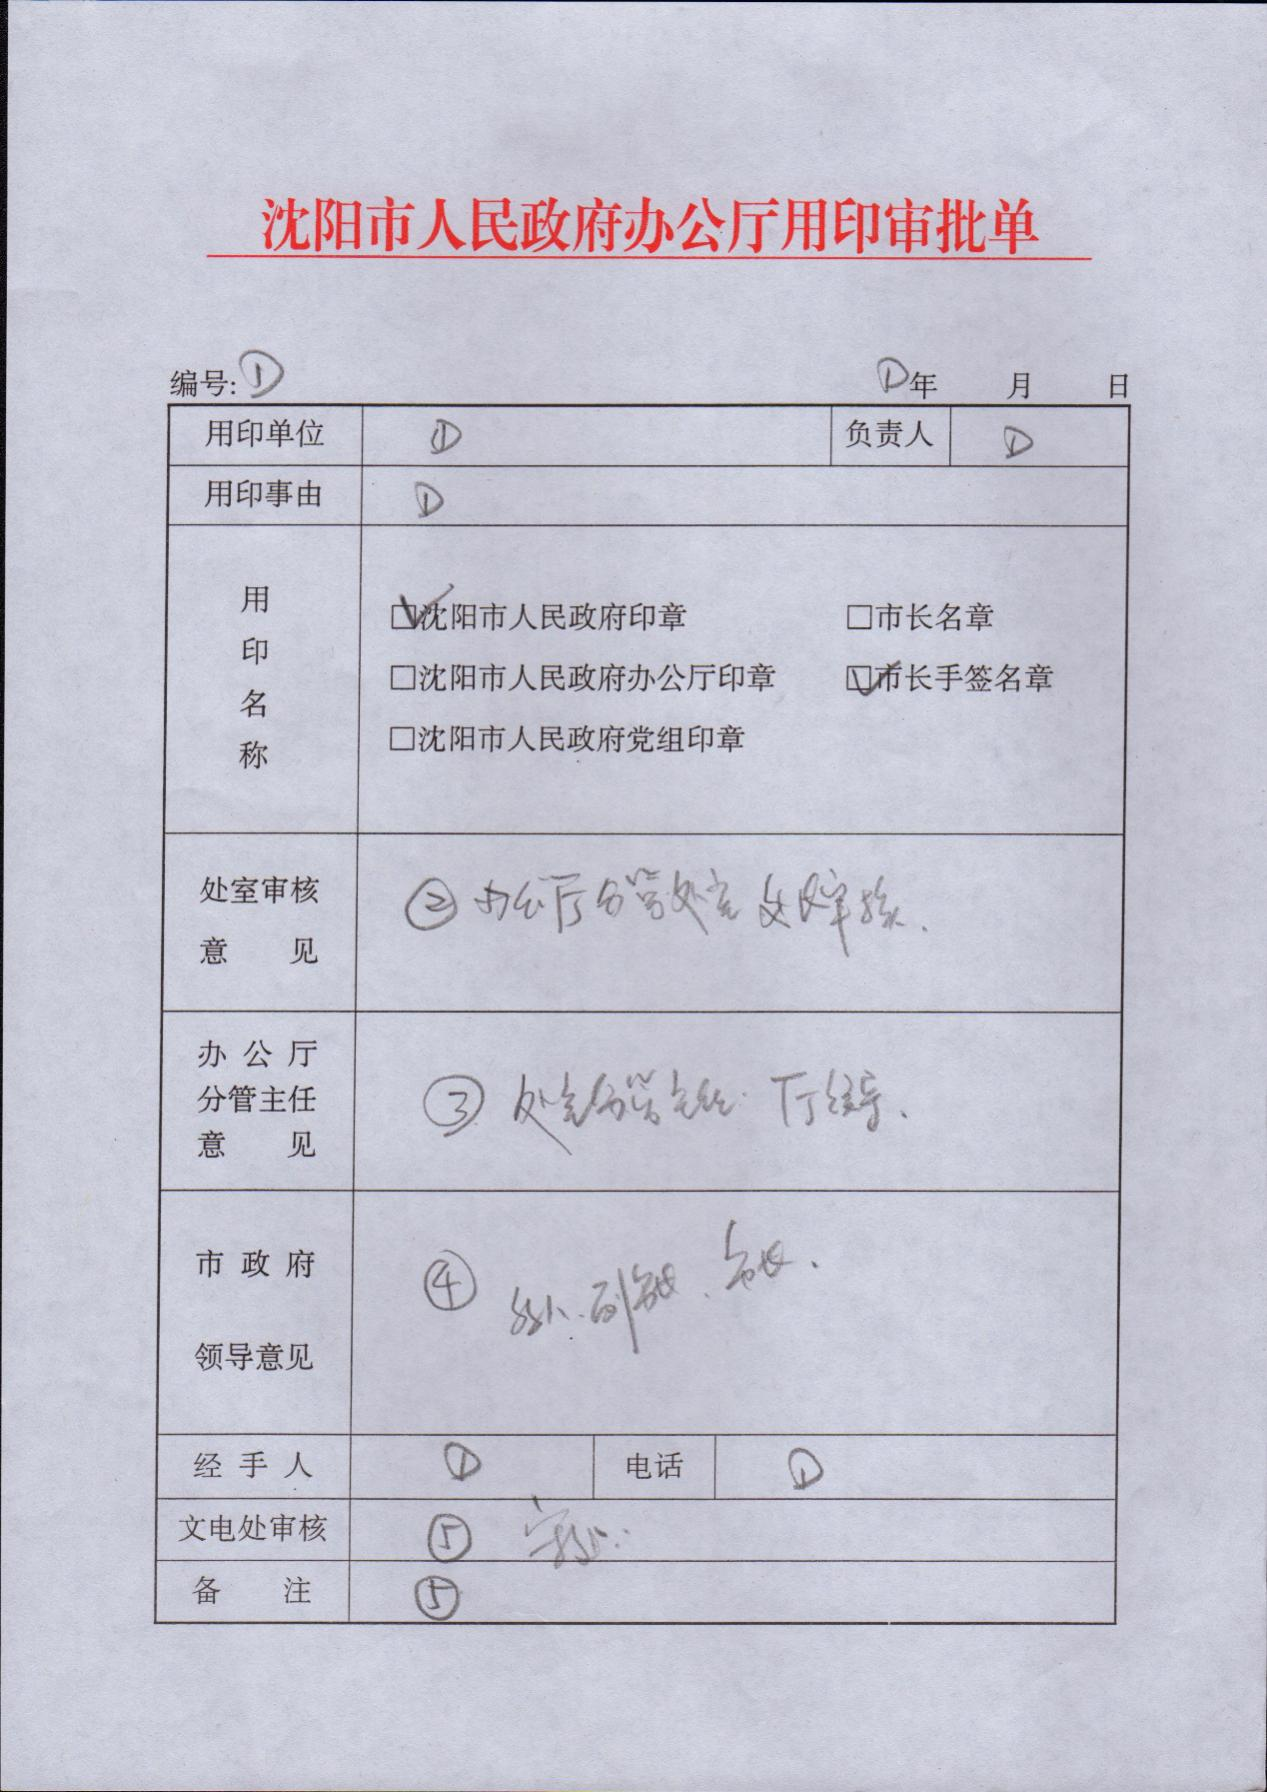 沈阳市人民政府办公厅用印审批单
编号: ① ①年 月 日
用印单位 ① 负责人 ①
用印事由 ①
用印名称
☑沈阳市人民政府印章 □市长名章
□沈阳市人民政府办公厅印章 ☑市长手签名章
□沈阳市人民政府党组印章
处室审核
意 见
② 办公厅分管处室 处长审核.
办公厅
分管主任
意 见
③ 处室分管主任. 厅领导、
市政府
领导意见
④ 副市长、市长、
经手人 ① 电话 ①
文电处审核 ⑤
备 注 ⑤